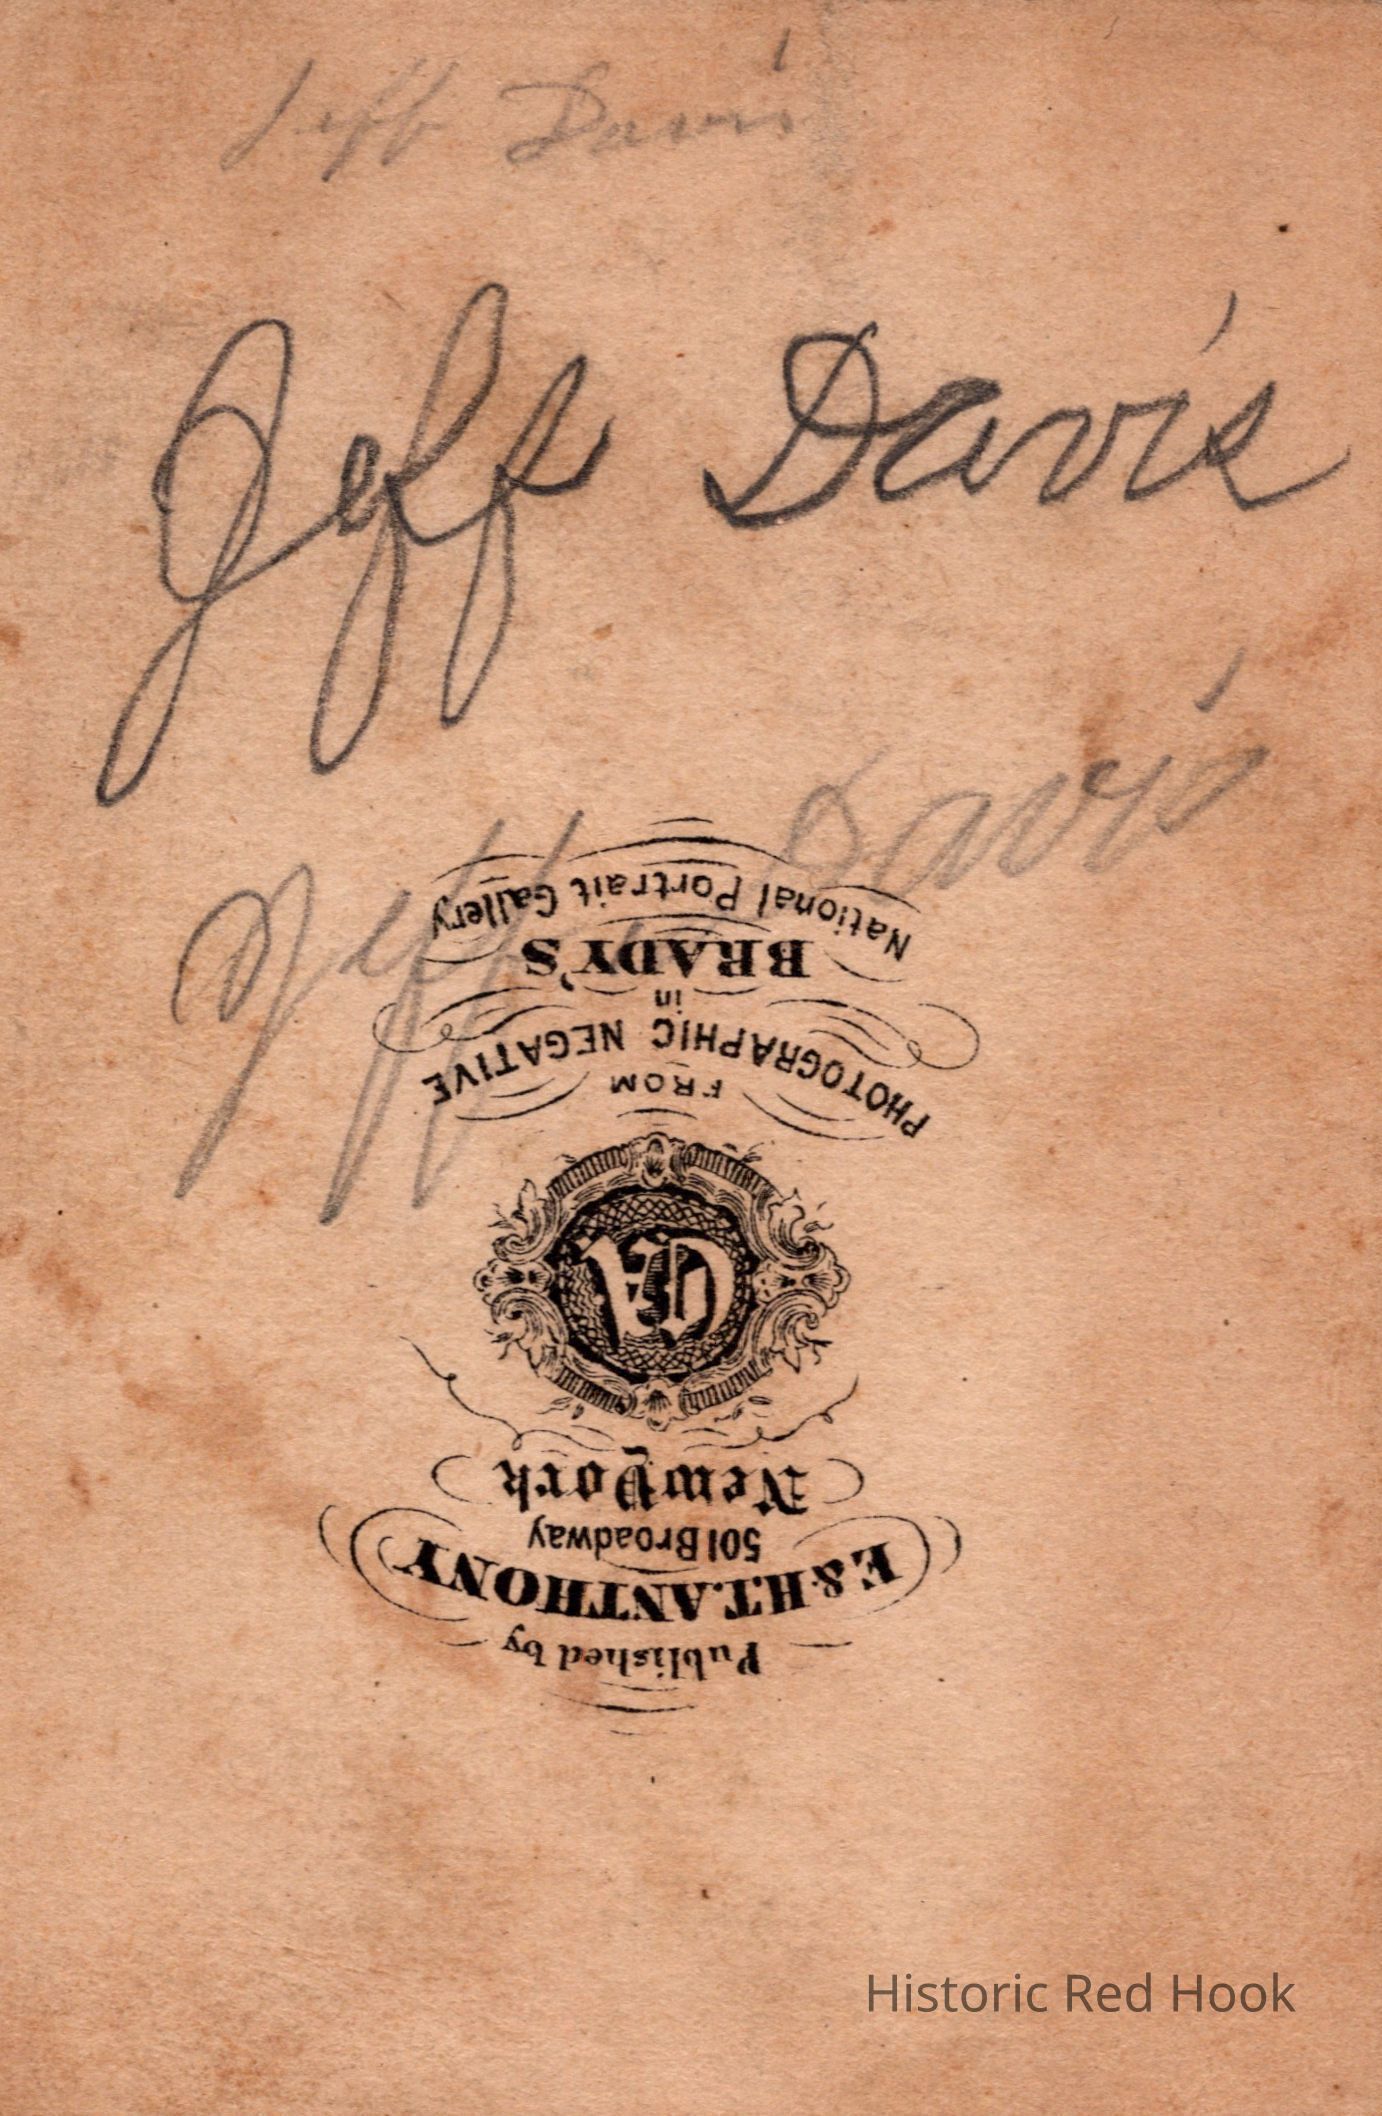 Jeff Davis
Jeff Davis
Jeff Davis
Published by
E. & H.T. ANTHONY
501 Broadway
New York
A
FROM
PHOTOGRAPHIC NEGATIVE
in
BRADY'S
National Portrait Gallery
Historic Red Hook